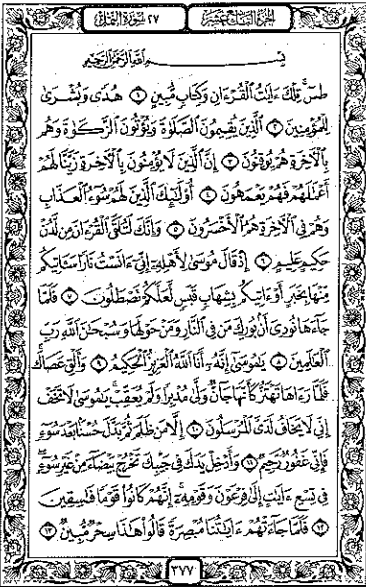 الجزء التاسع عشر
٢٧ سورة النمل
بِسْمِ اللَّهِ الرَّحْمَٰنِ الرَّحِيمِ
طسٓ ۚ تِلْكَ ءَايَٰتُ ٱلْقُرْءَانِ وَكِتَابٍ مُّبِينٍ ١ هُدًى وَبُشْرَىٰ
لِلْمُؤْمِنِينَ ٢ ٱلَّذِينَ يُقِيمُونَ ٱلصَّلَوٰةَ وَيُؤْتُونَ ٱلزَّكَوٰةَ وَهُم
بِٱلْءَاخِرَةِ هُمْ يُوقِنُونَ ٣ إِنَّ ٱلَّذِينَ لَا يُؤْمِنُونَ بِٱلْءَاخِرَةِ زَيَّنَّا لَهُمْ
أَعْمَٰلَهُمْ فَهُمْ يَعْمَهُونَ ٤ أُو۟لَٰٓئِكَ ٱلَّذِينَ لَهُمْ سُوٓءُ ٱلْعَذَابِ
وَهُمْ فِى ٱلْءَاخِرَةِ هُمُ ٱلْأَخْسَرُونَ ٥ وَإِنَّكَ لَتُلَقَّى ٱلْقُرْءَانَ مِن لَّدُنْ
حَكِيمٍ عَلِيمٍ ٦ إِذْ قَالَ مُوسَىٰ لِأَهْلِهِۦٓ إِنِّىٓ ءَانَسْتُ نَارًا سَـَٔاتِيكُم
مِّنْهَا بِخَبَرٍ أَوْ ءَاتِيكُم بِشِهَابٍ قَبَسٍ لَّعَلَّكُمْ تَصْطَلُونَ ٧ فَلَمَّا
جَآءَهَا نُودِىَ أَنۢ بُورِكَ مَن فِى ٱلنَّارِ وَمَنْ حَوْلَهَا وَسُبْحَٰنَ ٱللَّهِ رَبِّ
ٱلْعَٰلَمِينَ ٨ يَٰمُوسَىٰٓ إِنَّهُۥٓ أَنَا ٱللَّهُ ٱلْعَزِيزُ ٱلْحَكِيمُ ٩ وَأَلْقِ عَصَاكَ ۚ
فَلَمَّا رَءَاهَا تَهْتَزُّ كَأَنَّهَا جَآنٌّ وَلَّىٰ مُدْبِرًا وَلَمْ يُعَقِّبْ ۚ يَٰمُوسَىٰ لَا تَخَفْ
إِنِّى لَا يَخَافُ لَدَىَّ ٱلْمُرْسَلُونَ ١٠ إِلَّا مَن ظَلَمَ ثُمَّ بَدَّلَ حُسْنًۢا بَعْدَ سُوٓءٍ
فَإِنِّى غَفُورٌ رَّحِيمٌ ١١ وَأَدْخِلْ يَدَكَ فِى جَيْبِكَ تَخْرُجْ بَيْضَآءَ مِنْ غَيْرِ سُوٓءٍ ۖ
فِى تِسْعِ ءَايَٰتٍ إِلَىٰ فِرْعَوْنَ وَقَوْمِهِۦٓ ۚ إِنَّهُمْ كَانُوا۟ قَوْمًا فَٰسِقِينَ
١٢ فَلَمَّا جَآءَتْهُمْ ءَايَٰتُنَا مُبْصِرَةً قَالُوا۟ هَٰذَا سِحْرٌ مُّبِينٌ ١٣
٣٧٧